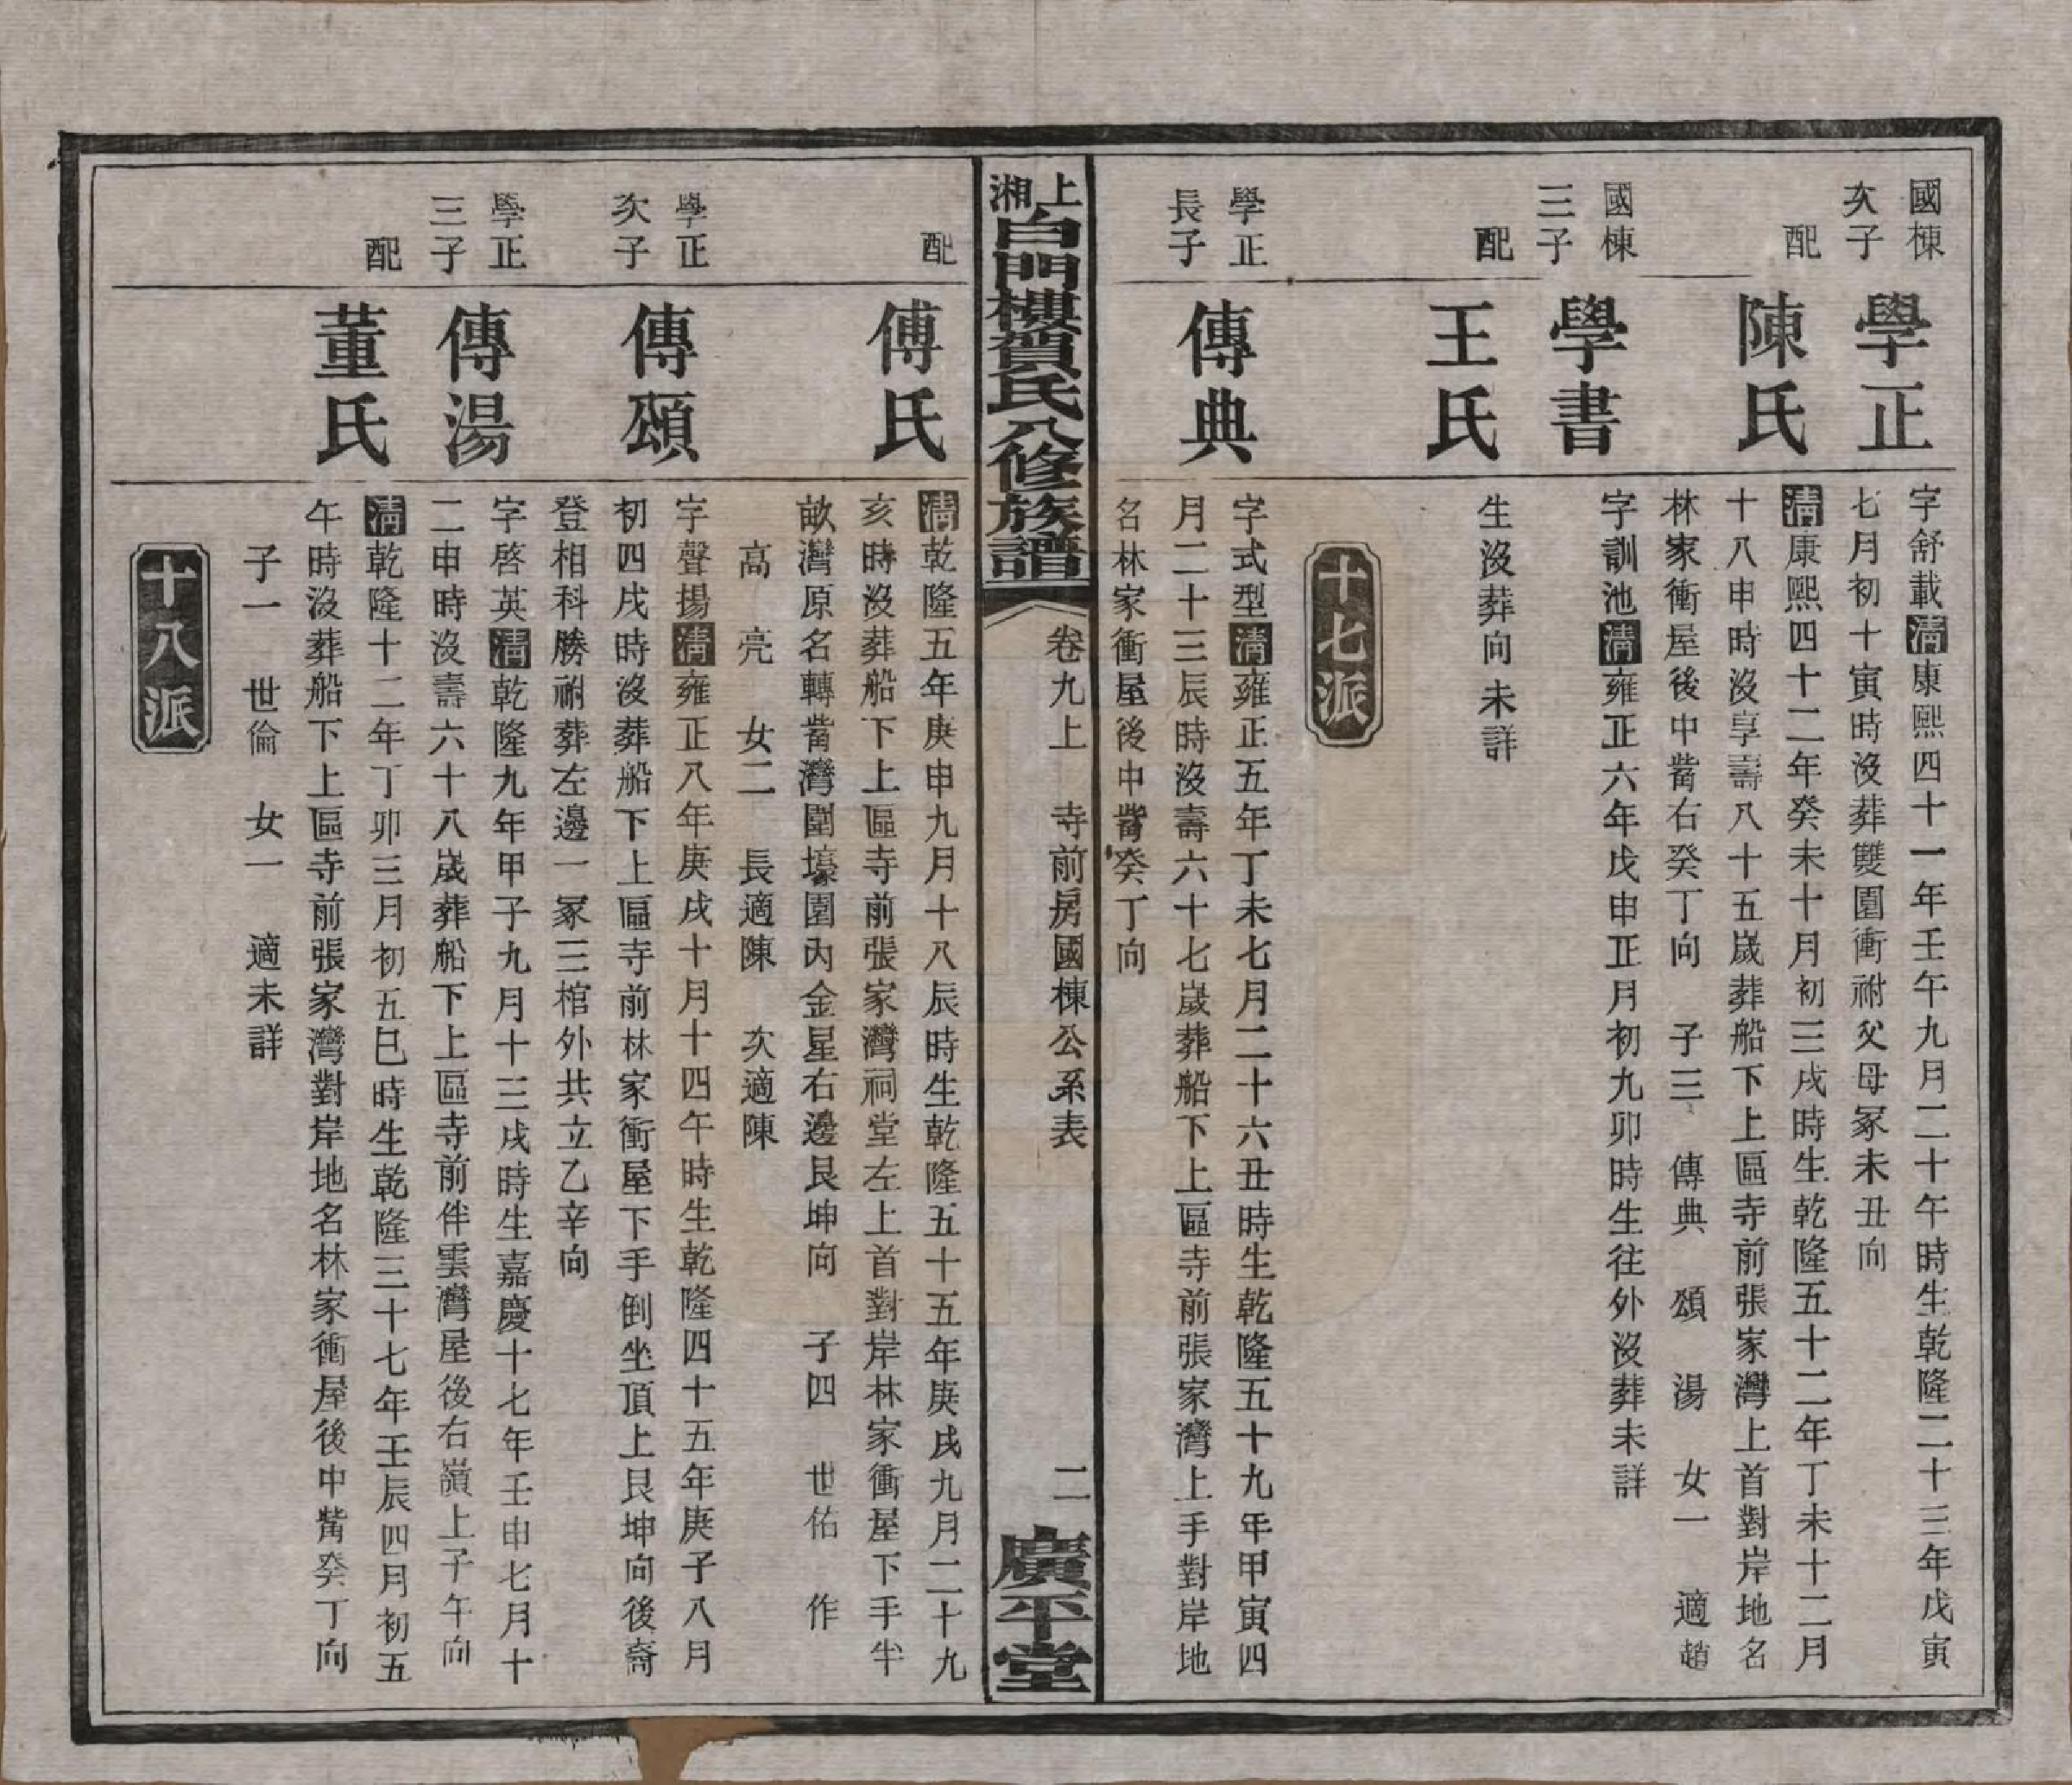 國棟
次子
學正
字舒載清康熙四十一年壬午九月二十午時生乾隆二十三年戊寅
七月初十寅時沒葬雙圍衝祔父母冢未丑向
配
陳氏
清康熙四十二年癸未十月初三戌時生乾隆五十二年丁未十二月
十八申時沒享壽八十五歲葬船下上區寺前張家灣上首對岸地名
林家衝屋後中觜右癸丁向 子三 傳典 頌 湯 女一 適趙
國棟
三子
學書
字訓池清雍正六年戊申正月初九卯時生往外沒葬未詳
配
王氏
生沒葬向未詳
十七派
學正
長子
傳典
字式型清雍正五年丁未七月二十六丑時生乾隆五十九年甲寅四
月二十三辰時沒壽六十七歲葬船下上區寺前張家灣上手對岸地
名林家衝屋後中觜癸丁向
上湘白門樓賀氏八修族譜
卷九上 寺前房國棟公系表
二
廣平堂
配
傅氏
清乾隆五年庚申九月十八辰時生乾隆五十五年庚戌九月二十九
亥時沒葬船下上區寺前張家灣祠堂左上首對岸林家衝屋下手半
畝灣原名轉觜灣圍壕園內金星右邊艮坤向 子四 世佑 作
高 亮 女二 長適陳 次適陳
學正
次子
傳頌
字聲揚清雍正八年庚戌十月十四午時生乾隆四十五年庚子八月
初四戌時沒葬船下上區寺前林家衝屋下手倒坐頂上艮坤向後裔
登相科勝祔葬左邊一冢三棺外共立乙辛向
學正
三子
傳湯
字啓英清乾隆九年甲子九月十三戌時生嘉慶十七年壬申七月十
二申時沒壽六十八歲葬船下上區寺前伴雲灣屋後右嶺上子午向
配
董氏
清乾隆十二年丁卯三月初五巳時生乾隆三十七年壬辰四月初五
午時沒葬船下上區寺前張家灣對岸地名林家衝屋後中觜癸丁向
子一 世倫 女一 適未詳
十八派